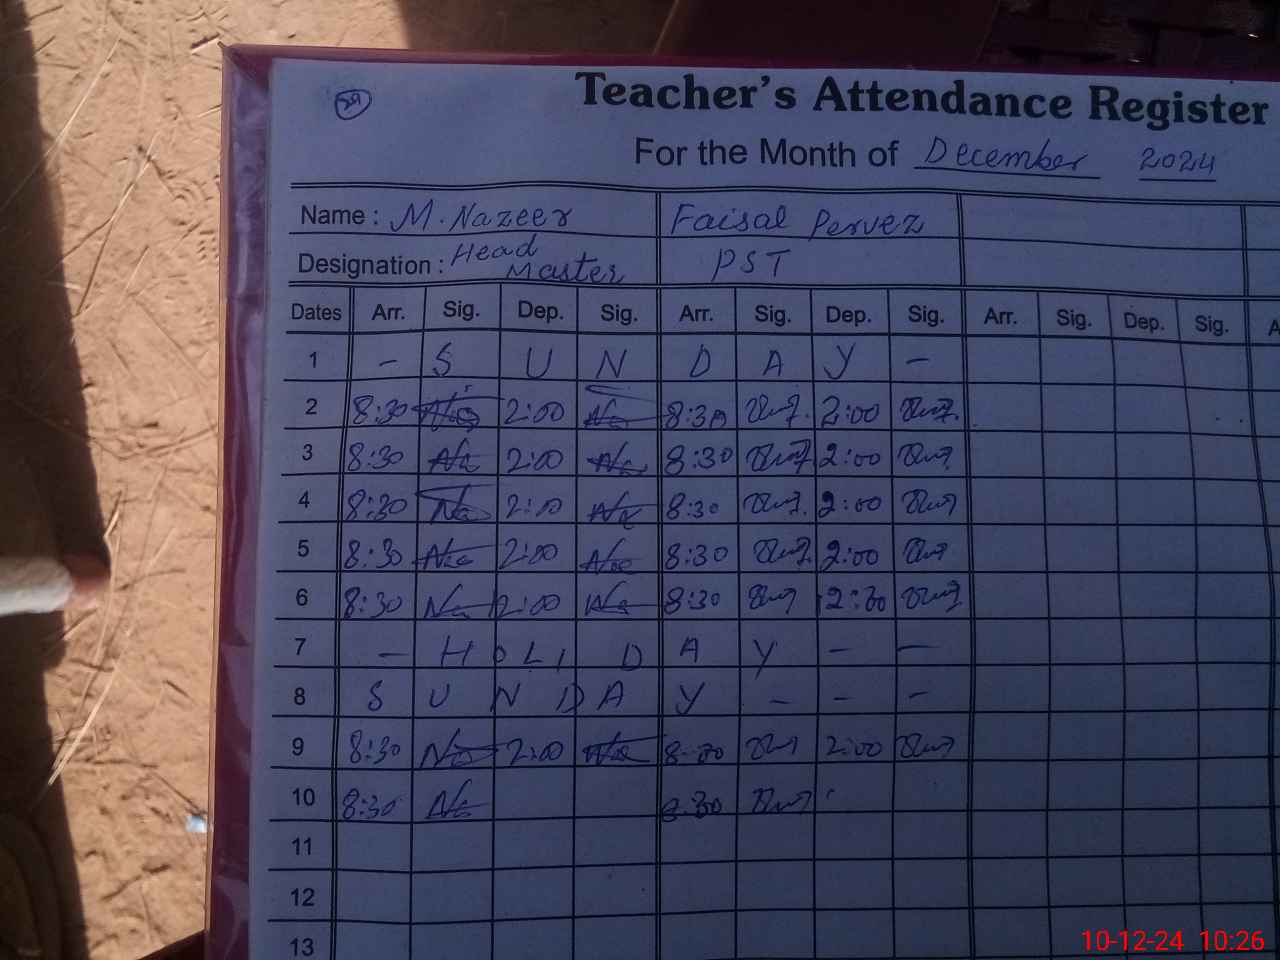 Teacher's Attendance Register
For the Month of December 2024
Name : M. Nazeer Faisal Pervez
Designation : Head Master PST
Dates Arr. Sig. Dep. Sig. Arr. Sig. Dep. Sig. Arr. Sig. Dep. Sig. A
1 - S U N D A Y -
2 8:30 2:00 8:30 2:00
3 8:30 2:00 8:30 2:00
4 8:30 2:00 8:30 2:00
5 8:30 2:00 8:30 2:00
6 8:30 2:00 8:30
7 - H O L I D A Y - -
8 S U N D A Y - - -
9 8:30 2:00 2:00
10 8:30 8:30
11
12
13
10-12-24 10:26